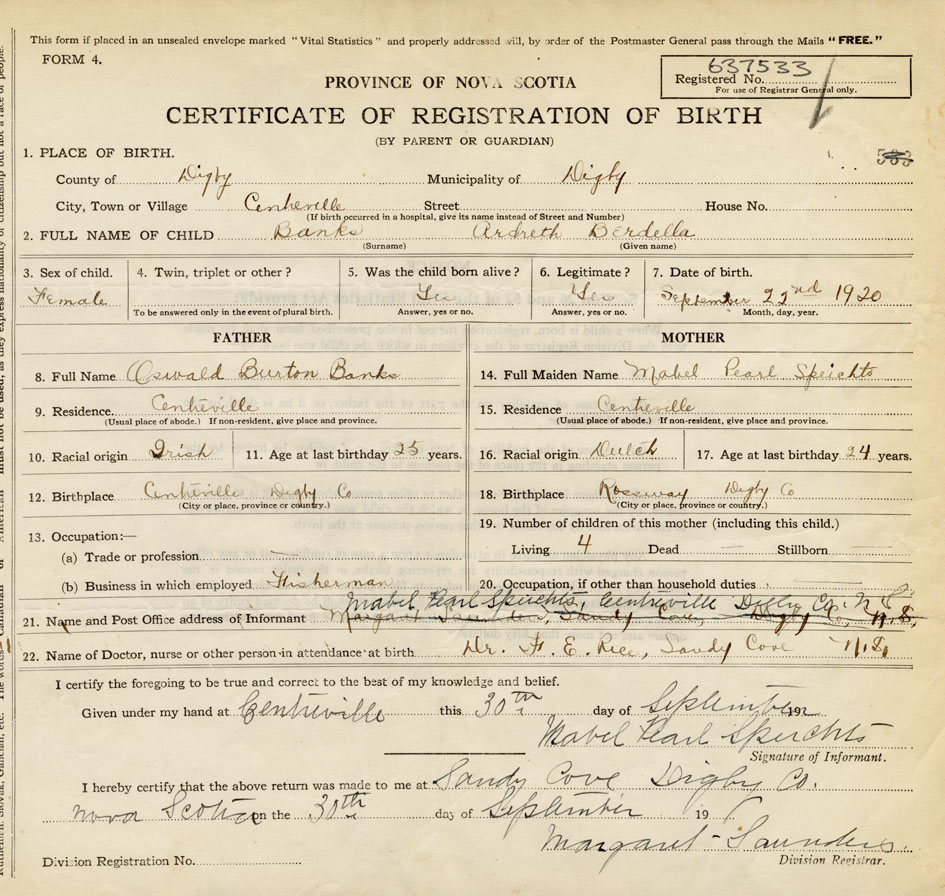 This form if placed in an unsealed envelope marked "Vital Statistics" and properly addressed will, by order of the Postmaster General pass through the Mails "FREE."
FORM 4.
637533
Registered No.
For use of Registrar General only.
PROVINCE OF NOVA SCOTIA
CERTIFICATE OF REGISTRATION OF BIRTH
(BY PARENT OR GUARDIAN)
1. PLACE OF BIRTH.
County of Digby Municipality of Digby
City, Town or Village Centreville Street House No.
(If birth occurred in a hospital, give its name instead of Street and Number)
2. FULL NAME OF CHILD Banks Ardreth Berdella
(Surname) (Given name)
3. Sex of child. 4. Twin, triplet or other? 5. Was the child born alive? 6. Legitimate? 7. Date of birth.
Female Yes Yes September 22nd 1920
To be answered only in the event of plural birth. Answer, yes or no. Answer, yes or no. Month, day, year.
FATHER MOTHER
8. Full Name Oswald Burton Banks 14. Full Maiden Name Mabel Pearl Speichts
9. Residence. Centreville 15. Residence Centreville
(Usual place of abode.) If non-resident, give place and province. (Usual place of abode.) If non-resident, give place and province.
10. Racial origin Irish 11. Age at last birthday 25 years. 16. Racial origin Dutch 17. Age at last birthday 24 years.
12. Birthplace Centreville Digby Co 18. Birthplace Rossway Digby Co
(City or place, province or country.) (City or place, province or country.)
13. Occupation:— 19. Number of children of this mother (including this child.)
(a) Trade or profession — Living 4 Dead — Stillborn —
(b) Business in which employed Fisherman 20. Occupation, if other than household duties
Mabel Pearl Speichts, Centreville Digby Co. N.S.
21. Name and Post Office address of Informant Margaret Saunders, Sandy Cove, Digby Co, N.S.
22. Name of Doctor, nurse or other person in attendance at birth Dr. F. E. Rice, Sandy Cove N.S.
I certify the foregoing to be true and correct to the best of my knowledge and belief.
Given under my hand at Centreville this 30th day of September 192
Mabel Pearl Speichts
Signature of Informant.
I hereby certify that the above return was made to me at Sandy Cove Digby Co.
Nova Scotia on the 30th day of September 19
Margaret Saunders
Division Registrar.
Division Registration No.